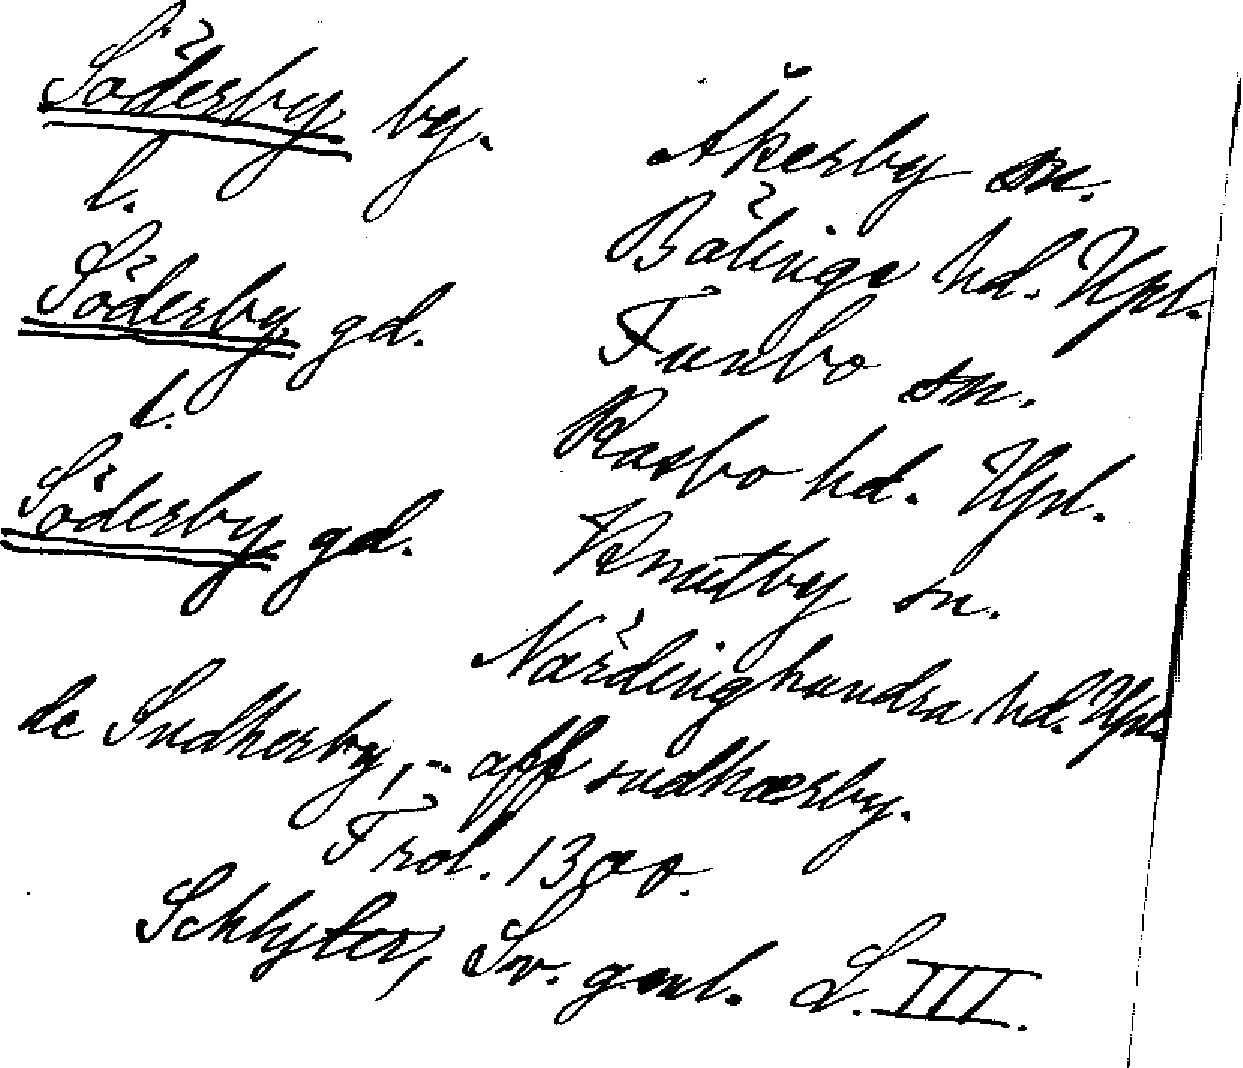 Söderby by. Åkerby sn.
l. Bälinge hd. Upl.
Söderby gd. Funbo sn.
l. Rasbo hd. Upl.
Söderby gd. Knutby sn.
Närdinghundra hd. Upl.
de Sudherby, - aff sudhærby.
Trol. 1300.
Schlyter, Sv. gml. L. III.